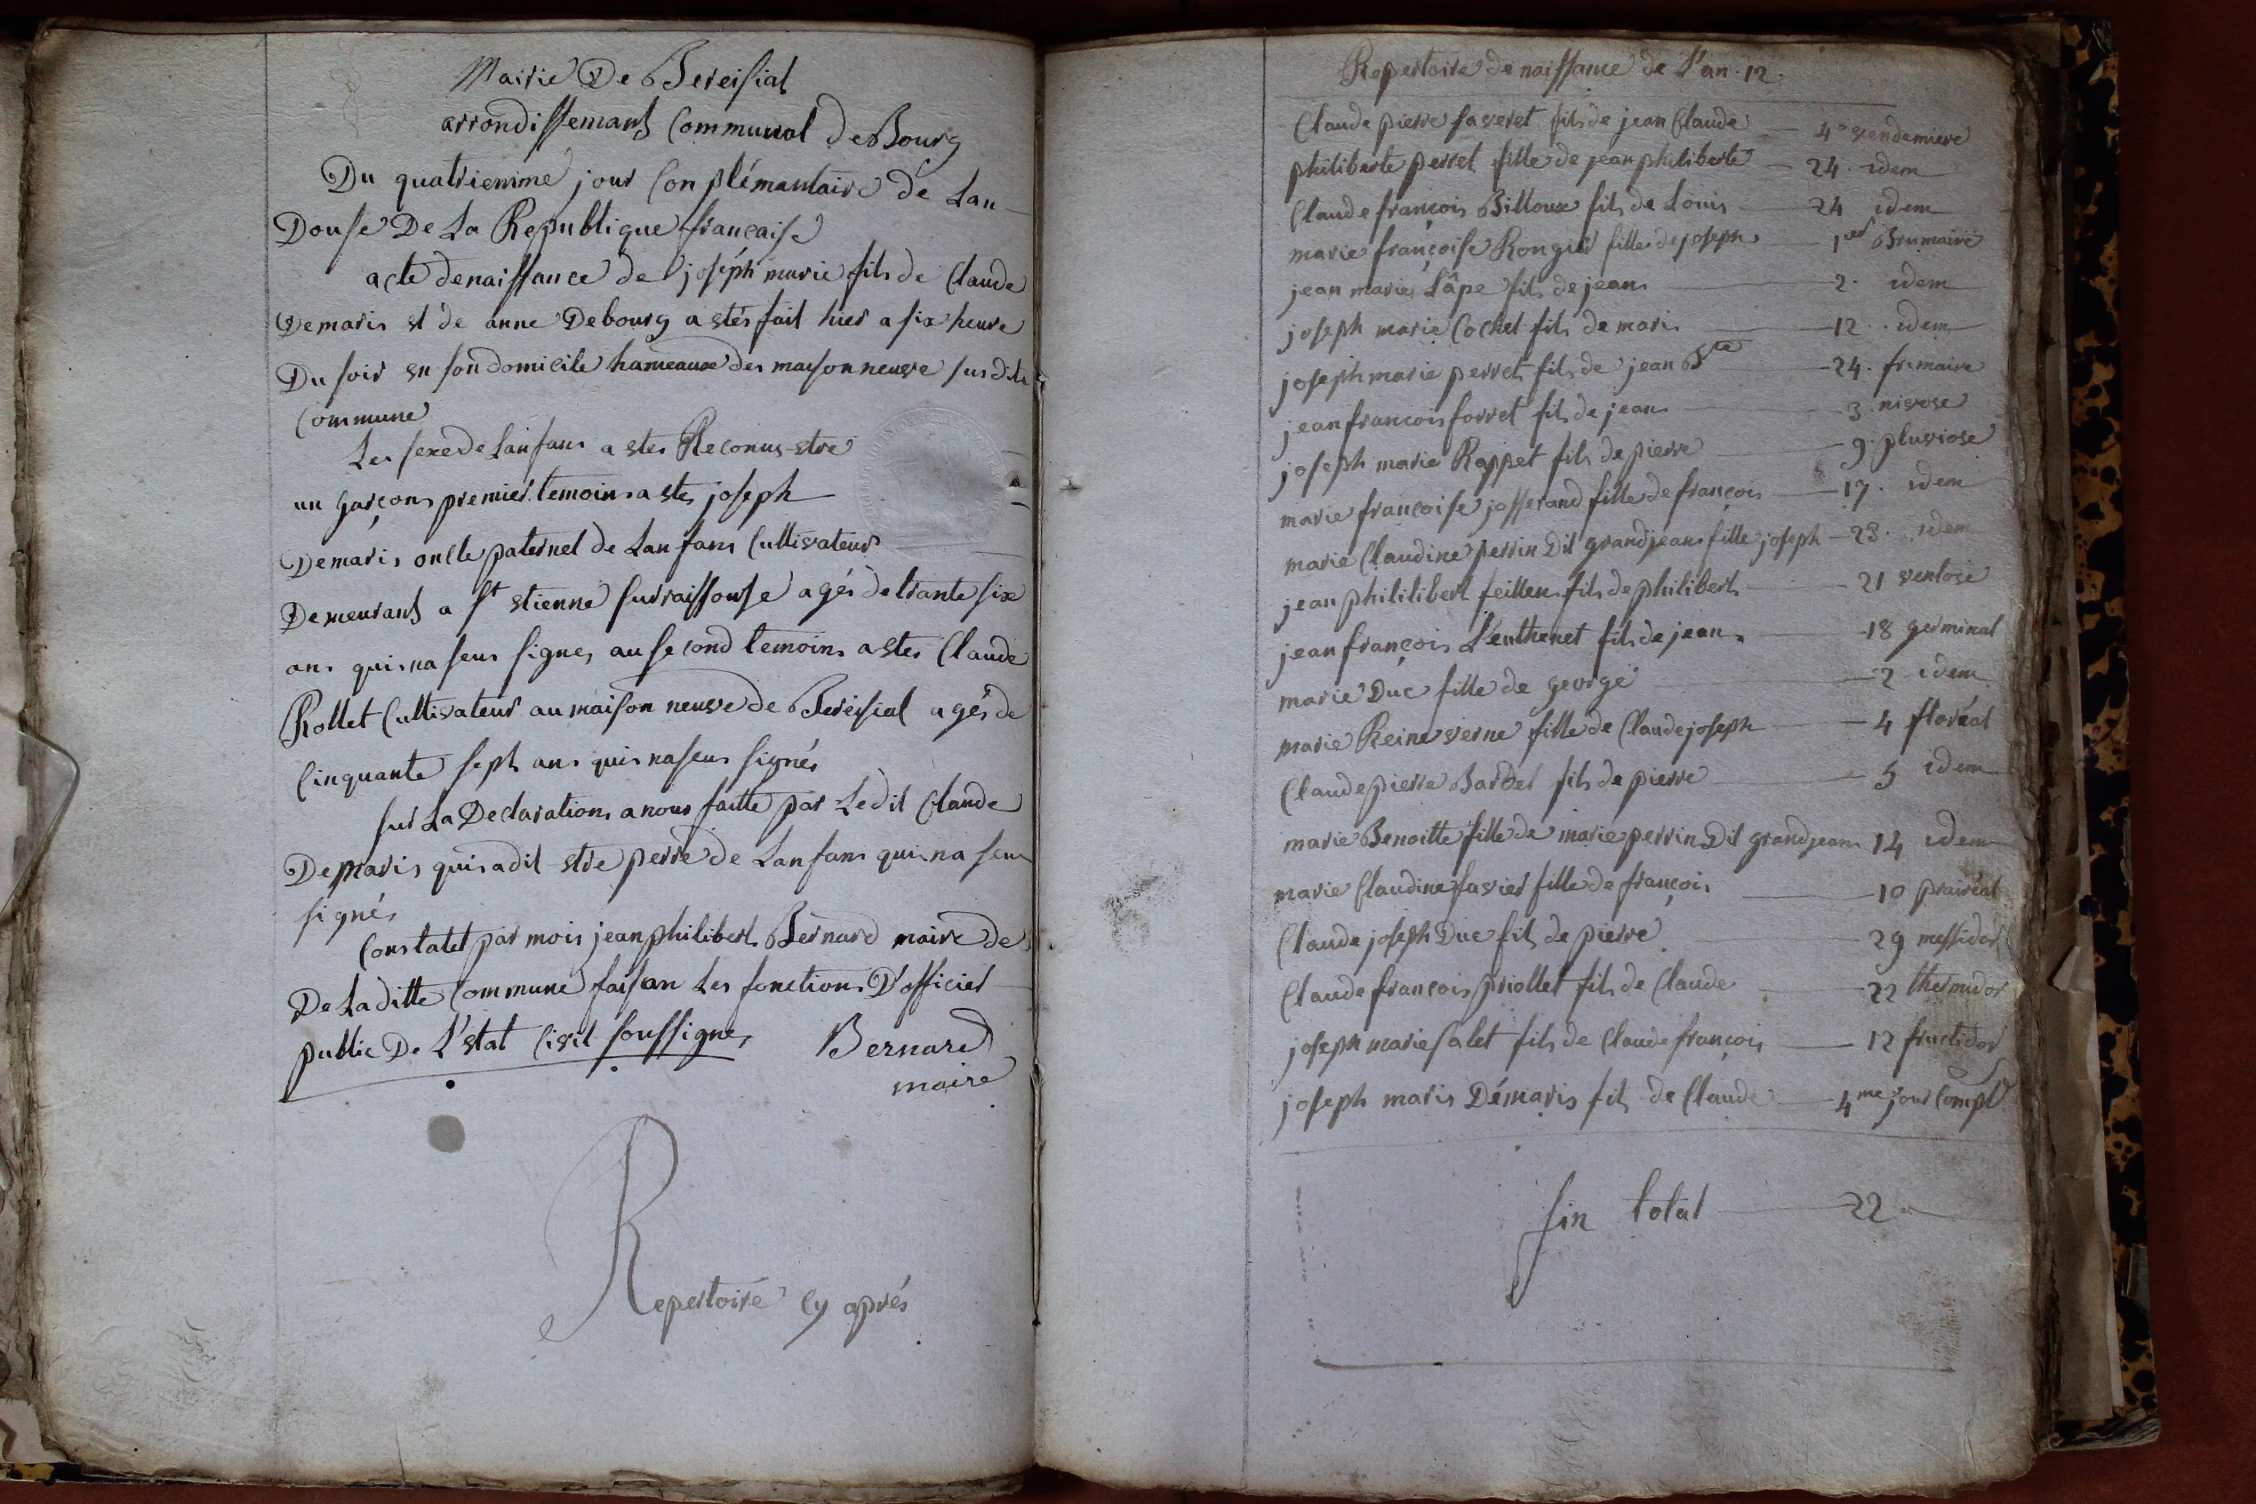 Mairie De Bereisiat
arrondissemant Communal de Bourg
Du quatriemme jour Conplémantaire de Lan
Douse De La Republique française
acte de naissance de joséph marie fils de Claude
Demaris et de anne Debourg a etés fait hier a six heure
Du soir en son domicile hameaux des maison neuve susdite
Commune
Les sexe de Lanfans a etes Reconus etre
un garçons premier temoins a etes joseph
Demaris oncle paternel de Lanfans Cultivateur
Demeurant a St etienne sur raissouse agés de trante six
ans quis na seus signes au second temoins a etes Claude
Rollet Cultivateur au maison neuve de Bereisial agés de
Cinquante sept ans quis na seus signés
sur La Declarations a nous faitte par Ledit Claude
Demaris quis a dit etre perre de Lanfans quis na seus
signés
Constatet par mois jean philibert Bernard maire de
De La ditte Commune faisan Les fonctions D'officier
public De L'etat Civil soussignes Bernard
maire
Repertoire Cy aprés
Repertoire de naissance de L'an 12
Claude pierre faveret fils de jean Claude 4e vendemiere
philiberte perret fille de jean philiberte 24 idem
Claude françois Billoux fils de Louis 24 idem
marie françoise Rongier fille de joseph 1er Brumaire
jean maries Lâpe fils de jean 2 idem
joseph marie Cochet fils de maris 12 idem
joseph marie perret fils de jean Bte 24 frimaire
jean francois forret fils de jean 3 nivose
joseph marie Rappet fils de pierre 9 pluviose
marie francoise josserand fille de françois 17 idem
marie Claudine perrin Dit grandjean fille joseph 23 idem
jean phililibert feillens fils de philibert 21 ventose
jean françois L'euthenet fils de jean 18 germinal
marie Duc fille de george 2 idem
marie Reine verne fille de Claude joseph 4 floréal
Claude pierre Barbet fils de pierre 5 idem
marie Benoitte fille de marie perrin Dit grandjean 14 idem
marie Claudine favier fille de françois 10 prairéal
Claude joseph Duc fils de pierre 29 messidor
Claude françois priollet fils de Claude 22 thermidor
joseph marie salet fils de Claude françois 12 fructidor
joseph maris Démaris fils de Claude 4me jour Compl
fin total 22